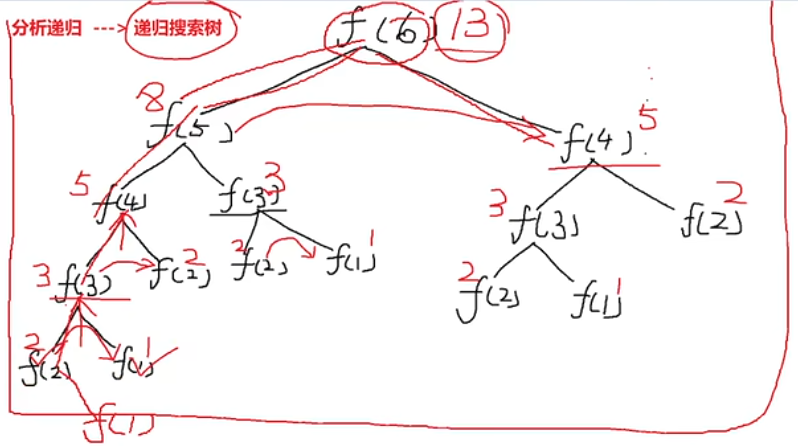 分析递归 ---> 递归搜索树
f(6) 13
8 f(5)
f(4) 5
5 f(4)
f(3) 3
3 f(3)
f(2) 2
3 f(3)
f(2) 2
2 f(2)
f(1) 1
2 f(2)
f(1) 1
2 f(2)
f(1) 1
f(1)